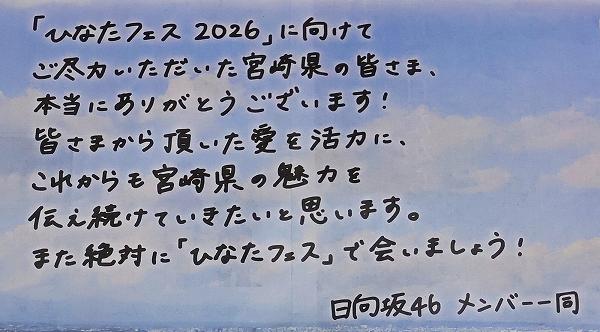 「ひなたフェス 2026」に向けて
ご尽力いただいた宮崎県の皆さま、
本当にありがとうございます!
皆さまから頂いた愛を活力に、
これからも宮崎県の魅力を
伝え続けていきたいと思います。
また絶対に「ひなたフェス」で会いましょう!
日向坂46 メンバー一同